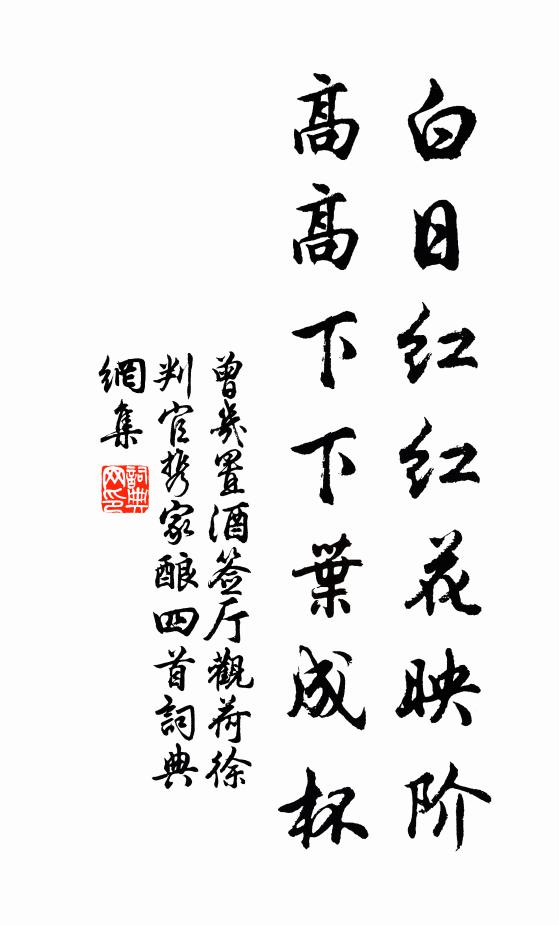 白日红红花映阶
高高下下葉成杯
曾幾置酒签厅觀荷徐
判官携家酿四首詞典
網集
詞典网印